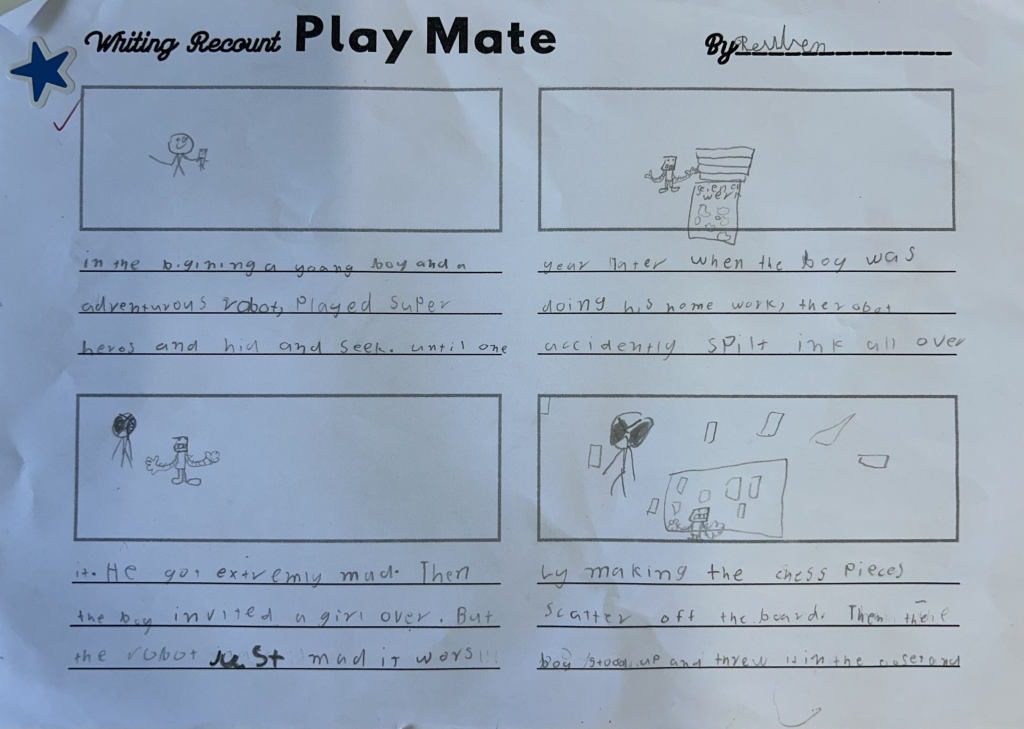 Writing Recount Play Mate
By Reuben
in the bigining a young boy and a
adventurous robot, played super
heros and hid and seek. until one
year later when the boy was
doing his home work, the robot
accidently spilt ink all over
science
work
it. He got extremly mad. Then
the boy invited a girl over. But
the robot just mad it wors!!!
by making the chess pieces
scatter off the board. Then the
boy stood up and threw it in the closer and